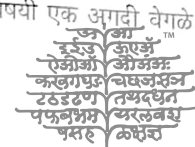 षयी एक अगदी वेगळे
अ आ TM
इ ई उ ऊ ए ऐ
ओ औ अं अः
क ख ग घ ङ च छ ज झ ञ
ट ठ ड ढ ण त थ द ध न
प फ ब भ म य र ल व श
ष स ह ळ क्ष ज्ञ